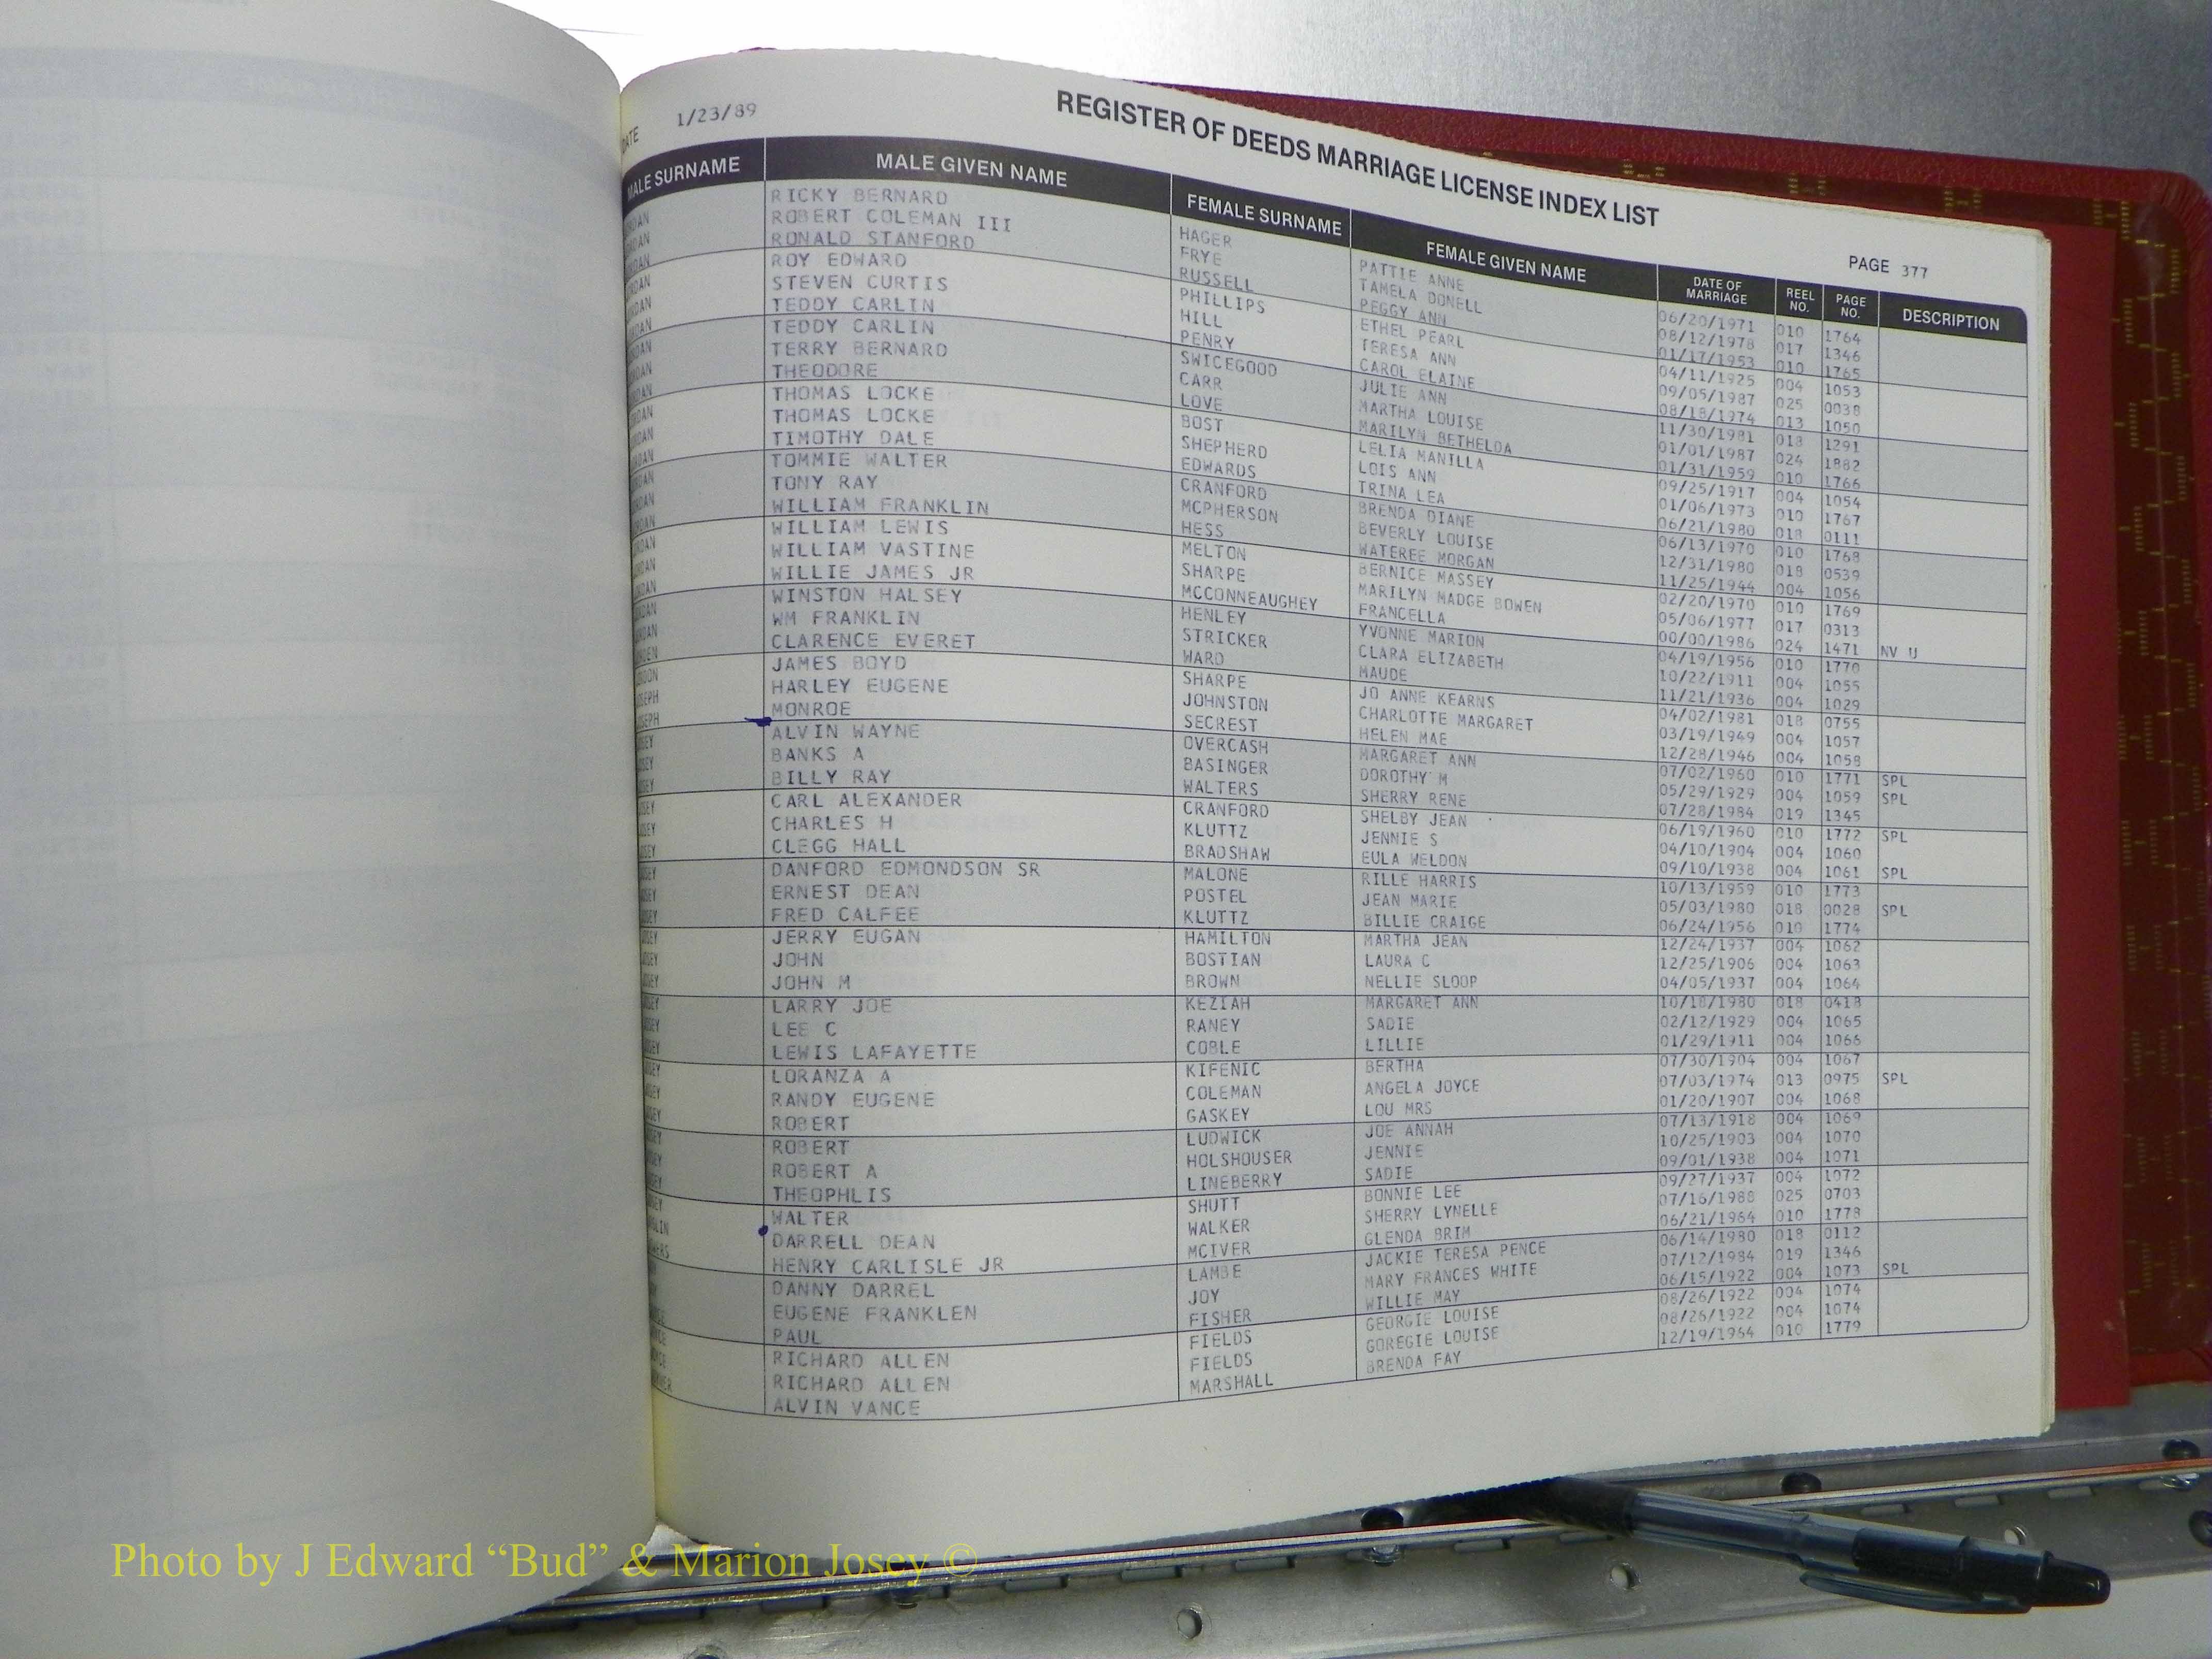 DATE 1/23/89
REGISTER OF DEEDS MARRIAGE LICENSE INDEX LIST
PAGE 377
MALE SURNAME MALE GIVEN NAME FEMALE SURNAME FEMALE GIVEN NAME DATE OF MARRIAGE REEL NO. PAGE NO. DESCRIPTION
RICKY BERNARD HAGER PATTIE ANNE 06/20/1971 010 1764
ROBERT COLEMAN III FRYE TAMELA DONELL 08/12/1978 017 1346
RONALD STANFORD RUSSELL PEGGY ANN 01/17/1953 010 1765
ROY EDWARD PHILLIPS ETHEL PEARL 04/11/1925 004 1053
STEVEN CURTIS HILL TERESA ANN 09/05/1987 025 0038
TEDDY CARLIN PENRY CAROL ELAINE 08/18/1974 013 1050
TEDDY CARLIN SWICEGOOD JULIE ANN 11/30/1981 018 1291
TERRY BERNARD CARR MARTHA LOUISE 01/01/1987 024 1882
THEODORE LOVE MARILYN BETHELOA 01/31/1959 010 1766
THOMAS LOCKE BOST LELIA MANILLA 09/25/1917 004 1054
THOMAS LOCKE SHEPHERD LOIS ANN 01/06/1973 010 1767
TIMOTHY DALE EDWARDS TRINA LEA 06/21/1980 018 0111
TOMMIE WALTER CRANFORD BRENDA DIANE 06/13/1970 010 1768
TONY RAY MCPHERSON BEVERLY LOUISE 12/31/1980 018 0539
WILLIAM FRANKLIN HESS WATEREE MORGAN 11/25/1944 004 1056
WILLIAM LEWIS MELTON BERNICE MASSEY 02/20/1970 010 1769
WILLIAM VASTINE SHARPE MARILYN MADGE BOWEN 05/06/1977 017 0313
WILLIE JAMES JR MCCONNEAUGHEY FRANCELLA 00/00/1986 024 1471 NV U
WINSTON HALSEY HENLEY YVONNE MARION 04/19/1956 010 1770
WM FRANKLIN STRICKER CLARA ELIZABETH 10/22/1911 004 1055
CLARENCE EVERET WARD MAUDE 11/21/1936 004 1029
JAMES BOYD SHARPE JO ANNE KEARNS 04/02/1981 018 0755
HARLEY EUGENE JOHNSTON CHARLOTTE MARGARET 03/19/1949 004 1057
MONROE SECREST HELEN MAE 12/28/1946 004 1058
ALVIN WAYNE OVERCASH MARGARET ANN 07/02/1960 010 1771 SPL
BANKS A BASINGER DOROTHY M 05/29/1929 004 1059 SPL
BILLY RAY WALTERS SHERRY RENE 07/28/1984 019 1345
CARL ALEXANDER CRANFORD SHELBY JEAN 06/19/1960 010 1772 SPL
CHARLES H KLUTTZ JENNIE S 04/10/1904 004 1060
CLEGG HALL BRADSHAW EULA WELDON 09/10/1938 004 1061 SPL
DANFORD EDMONDSON SR MALONE RILLE HARRIS 10/13/1959 010 1773
ERNEST DEAN POSTEL JEAN MARIE 05/03/1980 018 0028 SPL
FRED CALFEE KLUTTZ BILLIE CRAIGE 06/24/1956 010 1774
JERRY EUGAN HAMILTON MARTHA JEAN 12/24/1937 004 1062
JOHN BOSTIAN LAURA C 12/25/1906 004 1063
JOHN M BROWN NELLIE SLOOP 04/05/1937 004 1064
LARRY JOE KEZIAH MARGARET ANN 10/18/1980 018 0418
LEE C RANEY SADIE 02/12/1929 004 1065
LEWIS LAFAYETTE COBLE LILLIE 01/29/1911 004 1066
LORANZA A KIFENIC BERTHA 07/30/1904 004 1067
RANDY EUGENE COLEMAN ANGELA JOYCE 07/03/1974 013 0975 SPL
ROBERT GASKEY LOU MRS 01/20/1907 004 1068
ROBERT LUDWICK JOE ANNAH 07/13/1918 004 1069
ROBERT A HOLSHOUSER JENNIE 10/25/1903 004 1070
THEOPHLIS LINEBERRY SADIE 09/01/1938 004 1071
WALTER SHUTT BONNIE LEE 09/27/1937 004 1072
DARRELL DEAN WALKER SHERRY LYNELLE 07/16/1988 025 0703
HENRY CARLISLE JR MCIVER GLENDA BRIM 06/21/1964 010 1778
DANNY DARREL LAMBE JACKIE TERESA PENCE 06/14/1980 018 0112
EUGENE FRANKLEN JOY MARY FRANCES WHITE 07/12/1984 019 1346
PAUL FISHER WILLIE MAY 06/15/1922 004 1073 SPL
RICHARD ALLEN FIELDS GEORGIE LOUISE 08/26/1922 004 1074
RICHARD ALLEN FIELDS GOREGIE LOUISE 08/26/1922 004 1074
ALVIN VANCE MARSHALL BRENDA FAY 12/19/1964 010 1779
Photo by J Edward “Bud” & Marion Josey ©